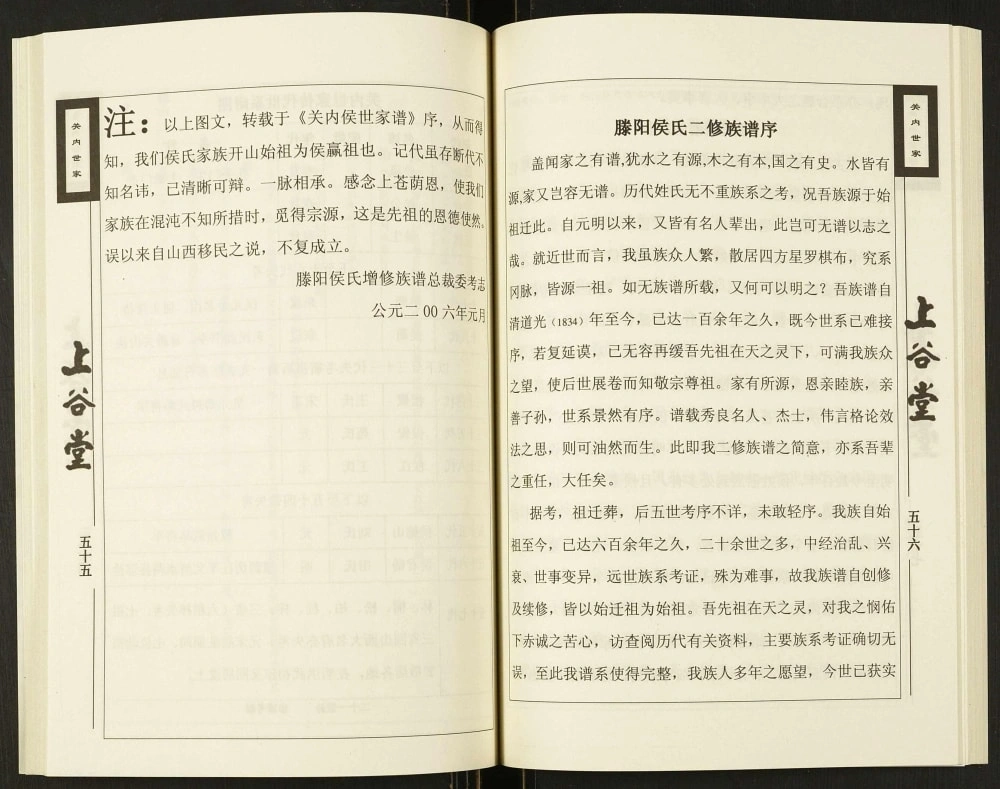 关内世家
上谷堂
五十五
注：以上图文，转载于《关内侯世家谱》序，从而得
知，我们侯氏家族开山始祖为侯赢祖也。记代虽存断代不
知名讳，已清晰可辩。一脉相承。感念上苍荫恩，使我们
家族在混沌不知所措时，觅得宗源，这是先祖的恩德使然。
误以来自山西移民之说，不复成立。
滕阳侯氏增修族谱总裁委考志
公元二00六年元月
滕阳侯氏二修族谱序
盖闻家之有谱,犹水之有源,木之有本,国之有史。水皆有
源,家又岂容无谱。历代姓氏无不重族系之考，况吾族源于始
祖迁此。自元明以来，又皆有名人辈出，此岂可无谱以志之
哉。就近世而言，我虽族众人繁，散居四方星罗棋布，究系
冈脉，皆源一祖。如无族谱所载，又何可以明之？吾族谱自
清道光（1834）年至今，已达一百余年之久，既今世系已难接
序，若复延谟，已无容再缓吾先祖在天之灵下，可满我族众
之望，使后世展卷而知敬宗尊祖。家有所源，恩亲睦族，亲
善子孙，世系景然有序。谱载秀良名人、杰士，伟言格论效
法之思，则可油然而生。此即我二修族谱之简意，亦系吾辈
之重任，大任矣。
据考，祖迁葬，后五世考序不详，未敢轻序。我族自始
祖至今，已达六百余年之久，二十余世之多，中经治乱、兴
衰、世事变异，远世族系考证，殊为难事，故我族谱自创修
及续修，皆以始迁祖为始祖。吾先祖在天之灵，对我之悯佑
下赤诚之苦心，访查阅历代有关资料，主要族系考证确切无
误，至此我谱系使得完整，我族人多年之愿望，今世已获实
关内世家
上谷堂
五十六